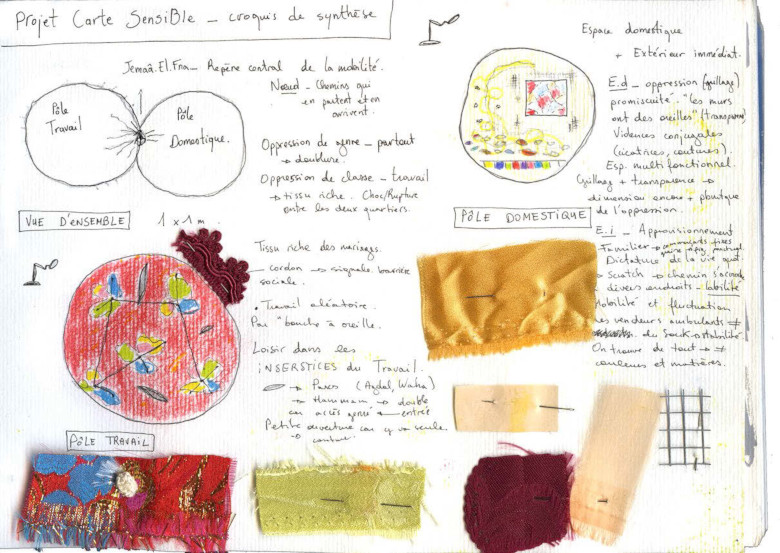 Projet Carte Sensible _ croquis de synthèse
Jemaâ.El.Fna _ Repère central de la mobilité.
Nœud _ Chemins qui
en partent et en
arrivent.
Pôle
Travail
Pôle
Domestique.
Oppression de genre _ partout
→ doublure.
Oppression de classe _ travail
→ tissu riche. Choc/Rupture
entre les deux quartiers.
VUE D'ENSEMBLE
1 x 1 m.
Tissu riche des mariages.
cordon → signale barrière
sociale.
• Travail aléatoire.
Par "bouche à oreille.
Loisir dans les
INSERSTICES du Travail.
→ Parcs (Agdal, Waha)
→ Hammam → double
car accès genré entrée
Petite ouverture car y va seule
→ couture.
PÔLE TRAVAIL
Espace domestique
+ Extérieur immédiat.
E.d _ oppression (grillage)
promiscuité. "les murs
ont des oreilles" (transparence)
Violences conjugales
(cicatrices, coutures).
Esp. multifonctionnel.
Grillage + transparence →
dimension encore + panoptique
de l'oppression.
PÔLE DOMESTIQUE
E.i _ Approvisionnement
Familier → commerçants fixes
Dictature de la vie quot.
→ Scratch → chemin s'accroche
à divers endroits - labilité
Mobilité et fluctuation
des vendeurs ambulants ≠
du Souk → stabilité.
On trouve de tout → ≠
couleurs et matières.